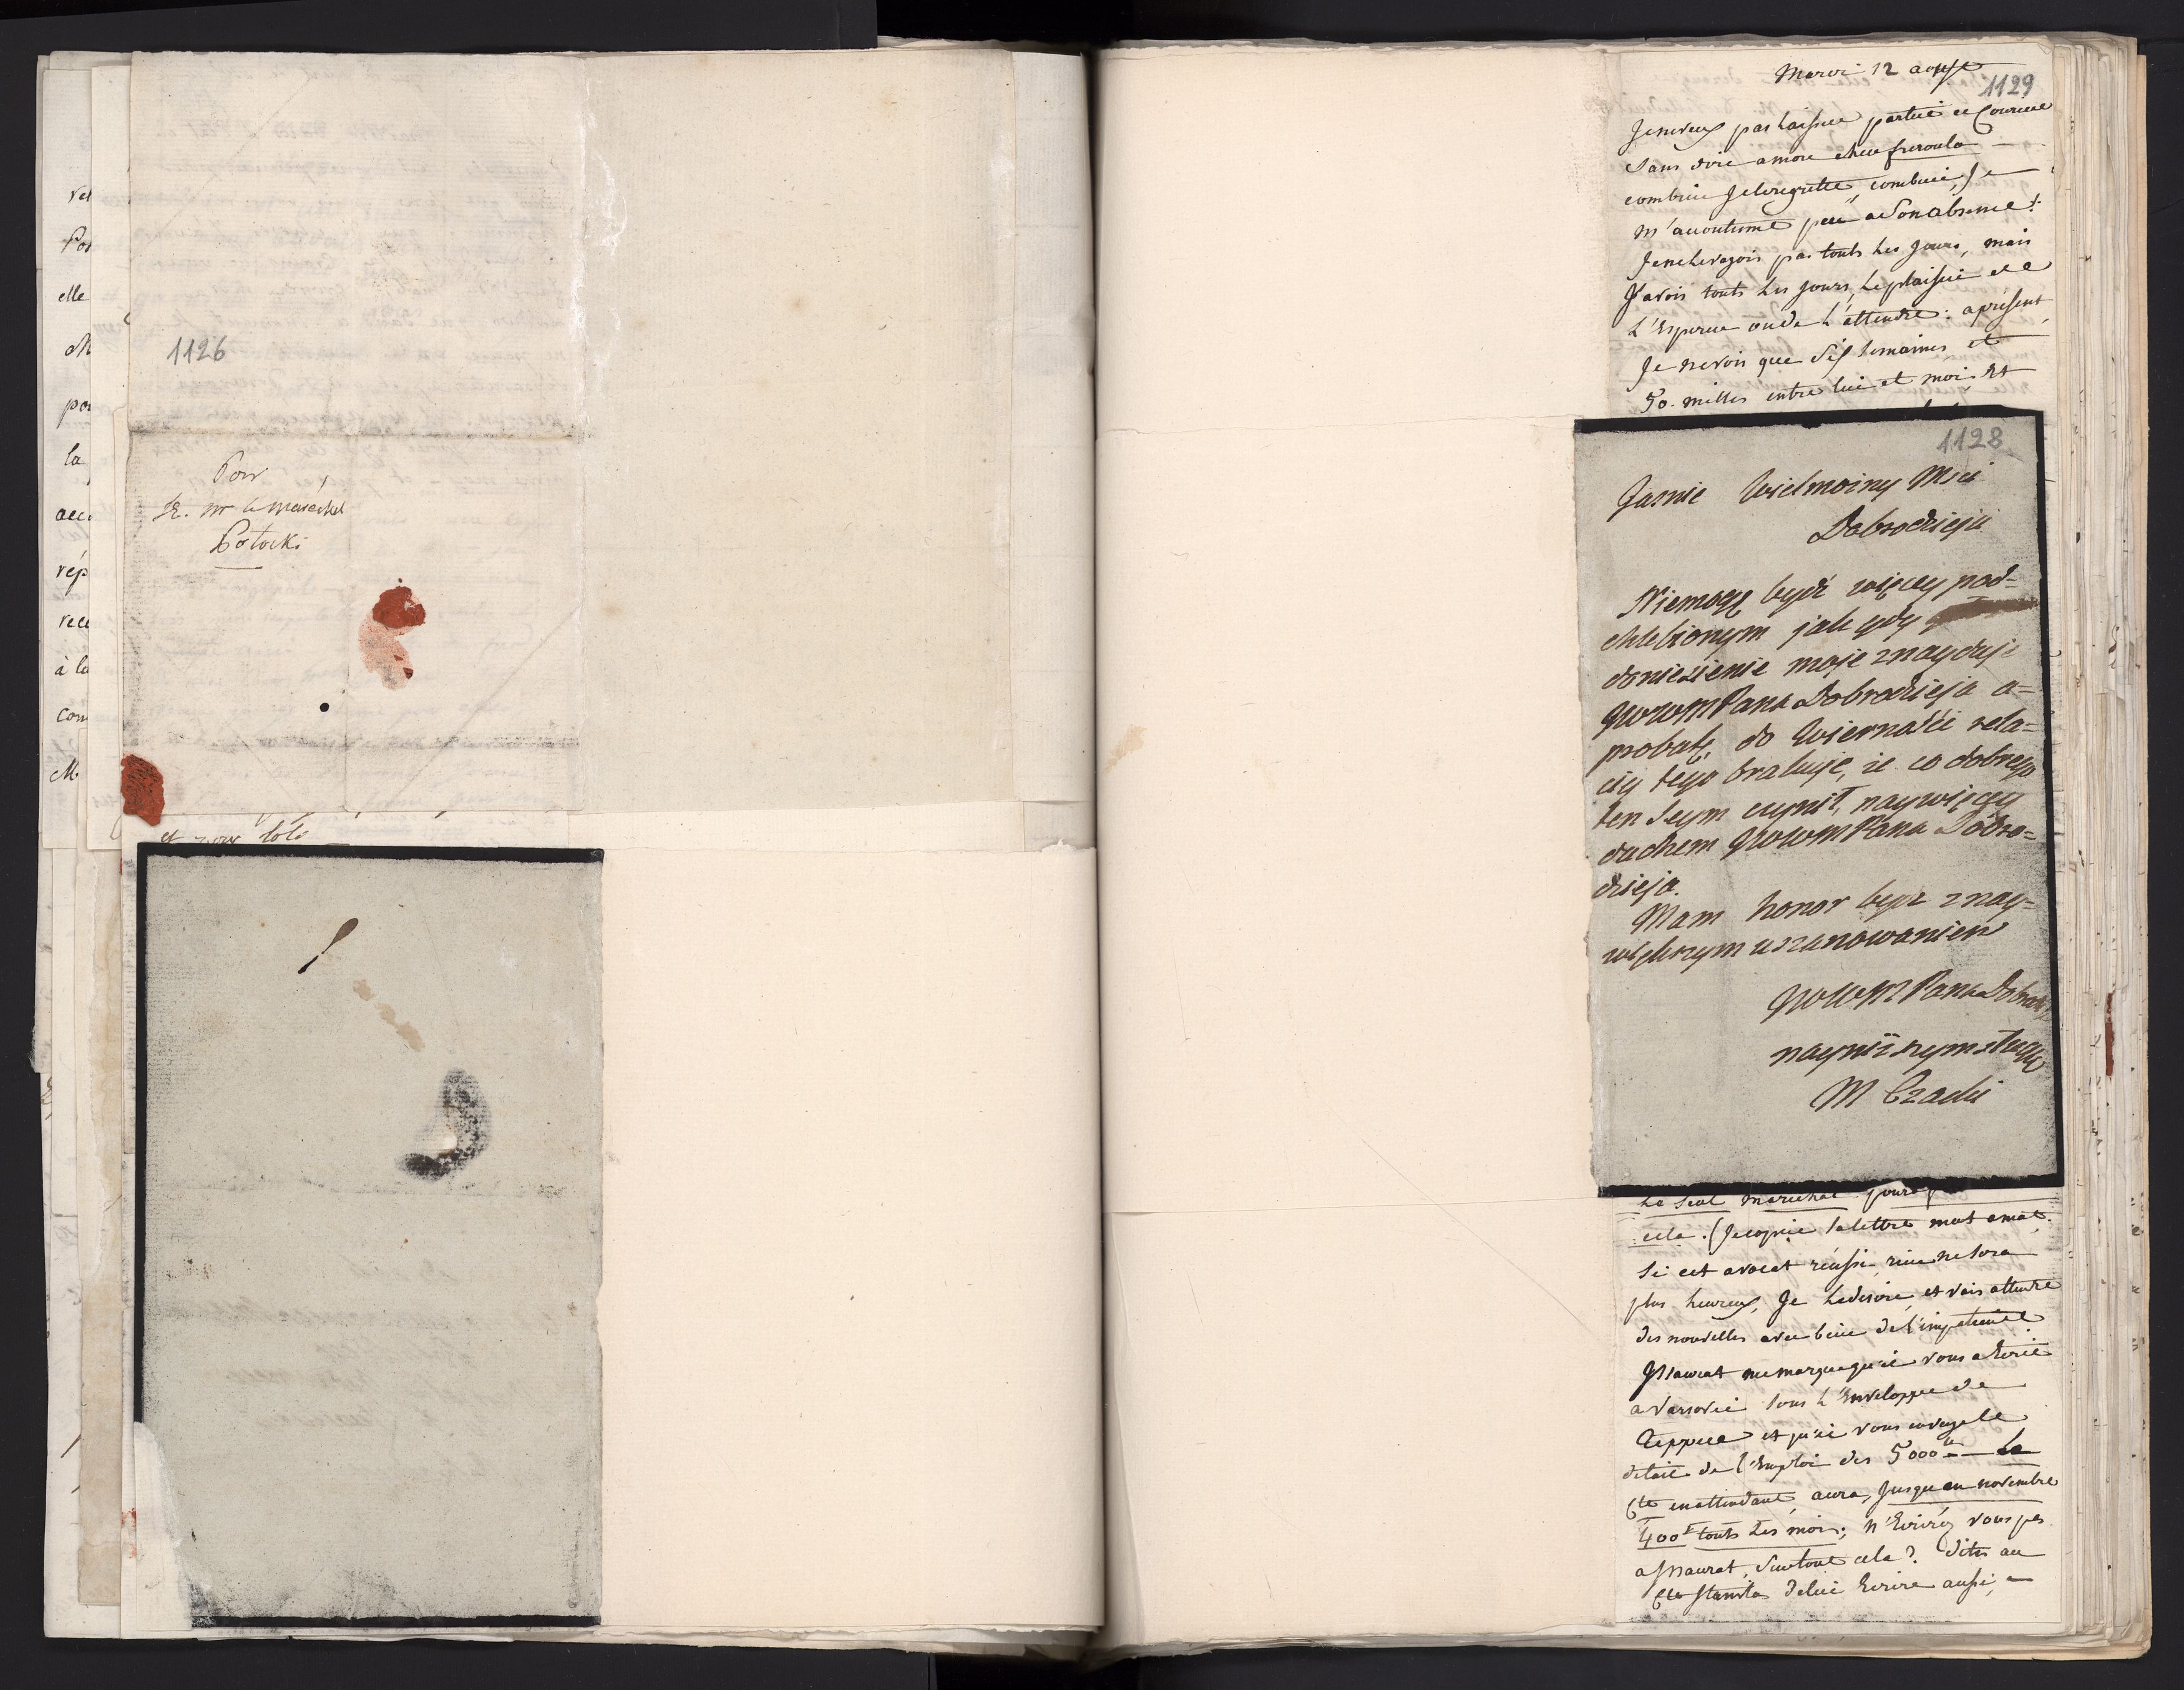 vel
Pos
elle
ch
pos
la
acc
rép
rece
à la
com
M.
1126
Pour
S.E. mr le maréchal
Potocki
et
Mardi 12 auguste
1129
Je ne veux pas laisser partir ce Courier
sans dire a mon cher
combien je le regrette, combien, Je
m'accoutume peu a son absence:
Je ne le voyois pas touts les jours, mais
J'avois touts les jours, le plaisir de
L'Esperer ou de L'attendre: aprésent
Je ne vois que six semaines et
50. milles entre lui et moi, Et
1128
Jasnie Wielmożny Mści
Dobrodzieju
Niemogę bydź więcey pod=
chlebionym jak gdy
doniesienie moje znayduje
JWWMPana Dobrodzieja a=
probatę, do wierności rela=
cyi tego brakuje, że co dobrego
ten Seym czynił, naywięcey
duchem JWWMPana Dobro=
dzieja.
Mam honor bydź z nay=
większym uszanowaniem
JWWMPana Dobrodz
nayniższym sługą
M Czacki
Le seul marechal pour
cela. (Je copie la lettre mot a mot.
Si cet avocat réussi rien ne sera
plus heureux, Je le desire, et vais attendre
des nouvelles avec bien de l'impatience
Maurat me marque qu'il vous a Ecrit
a Varsovie sous L'Enveloppe de
Tepper et qu'il vous envoye le
detail de l'Emploi des 5000# — La
Ctse en attendant aura, Jusqu'au novembre
400# touts les mois; N'Ecrirez vous pas
a Maurat, sur tout cela? Dites au
Cte Stanislas de lui Ecrire aussi,